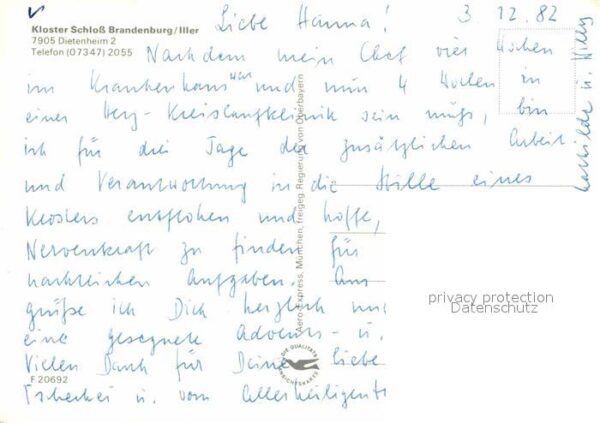 Kloster Schloß Brandenburg/Iller
7905 Dietenheim 2
Telefon (07347) 2055
Liebe Hanna! 3.12.82
Nachdem mein Chef vier Wochen
im Krankenhaus war und nun 4 Wochen in
einer Herz-Kreislaufklinik sein muß, bin
ich für drei Tage der zusätzlichen Arbeit
und Verantwortung in die Stille eines
Klosters entflohen und hoffe,
Nervenkraft zu finden für
die Aufgaben.
grüße ich Dich herzlich und
eine gesegnete Advents- u.
Vielen Dank für Deine liebe
u. vom Allerheiligent
u. Willy
Aero-Express, München, freigeg. Regierung von Oberbayern
DIE QUALITÄTS
ANSICHTSKARTE
F 20692
privacy protection
Datenschutz